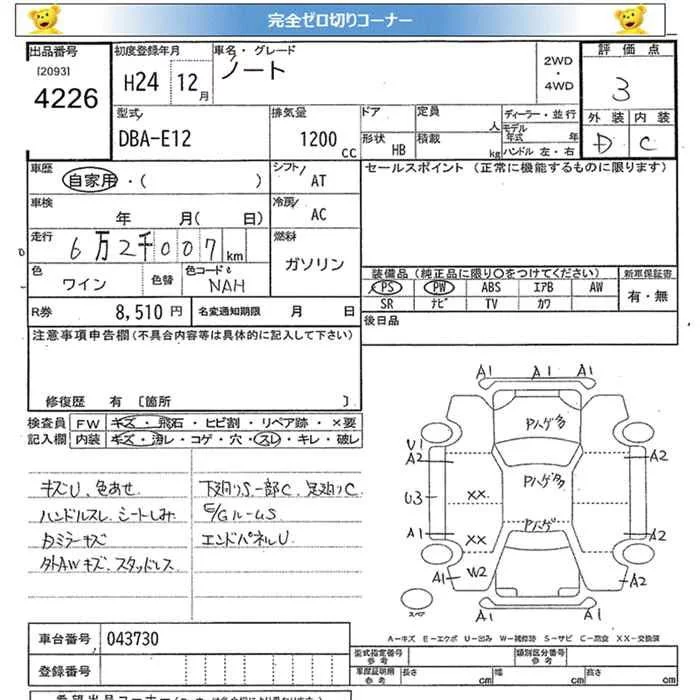 完全ゼロ切りコーナー
出品番号 初度登録年月 車名・グレード 2WD・4WD 評価点
[2093]
4226 H24 12月 ノート 3
型式 排気量 ドア 定員 人 ディーラー・並行 外装 内装
DBA-E12 1200 CC 形状 HB 積載 kg モデル年式 年 D C
ハンドル左・右
車歴 自家用・( ) シフト AT セールスポイント (正常に機能するものに限ります)
車検 年 月( 日) 冷房 AC
走行 6万2千007km 燃料 ガソリン
色 ワイン 色替 色コード NAH
装備品(純正品に限り〇をつけてください) 新車保証書
PS PW ABS エアB AW 有・無
SR ナビ TV カワ
R券 8,510円 名変通知期限 月 日 後日品
注意事項申告欄(不具合内容等は具体的に記入して下さい)
修復歴 有 〔箇所 〕
検査員 FW キズ・飛石・ヒビ割・リペア跡・×要
記入欄 内装 キズ・汚レ・コゲ・穴・スレ・キレ・破レ
キズU、色あせ 下廻りS一部C、足廻りC
ハンドルスレ、シートしみ E/GルームS
カミラーキズ エンドパネルU
外AWキズ、スタッドレス
A1 A1 A1
Pハゲ多
U1
A2 A2
Pハゲ多
U3 XX
Pハゲ
A1 XX A2
A1 W2 A2
スペア A1 A1
A-キズ E-エクボ U-凹み W-補修跡 S-サビ C-腐食 XX-交換済
車台番号 043730
型式指定番号 参考 類別区分番号 参考
登録番号 車庫証明用 参考 長さ cm 幅 cm 高さ cm